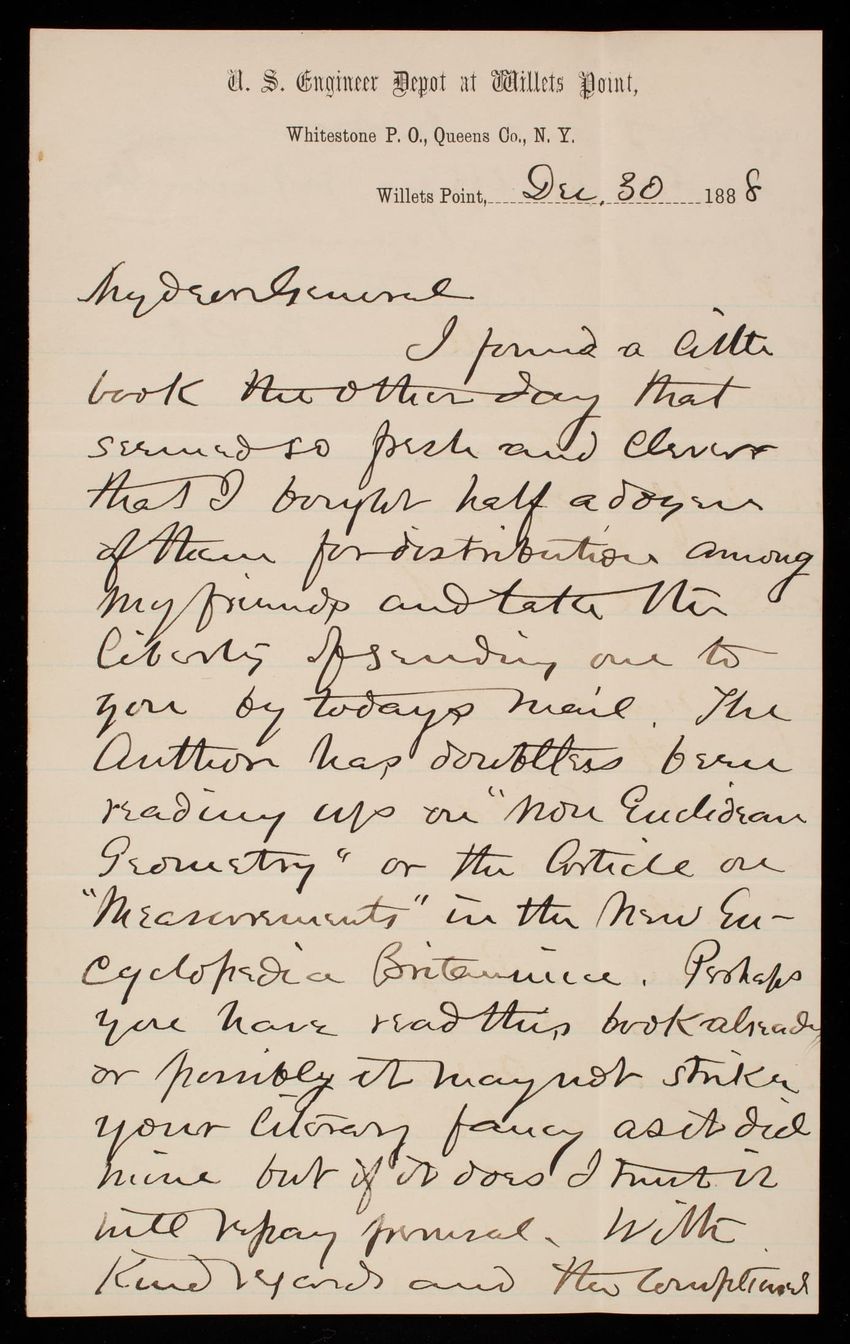 U. S. Engineer Depot at Willets Point,
Whitestone P. O., Queens Co., N. Y.
Willets Point, Dec. 30 1888
My dear General
I found a little
book the other day that
seemed so fresh and clever
that I bought half a dozen
of them for distribution among
my friends and take the
liberty of sending one to
you by todays mail. The
Author has doubtless been
reading up on "Non Euclidean
Geometry" or the Article on
"Measurements" in the New En-
cyclopedia Britannica. Perhaps
you have read this book already
or possibly it may not strike
your literary fancy as it did
mine but if it does I trust it
will repay perusal. With
Kind regards and the compliments